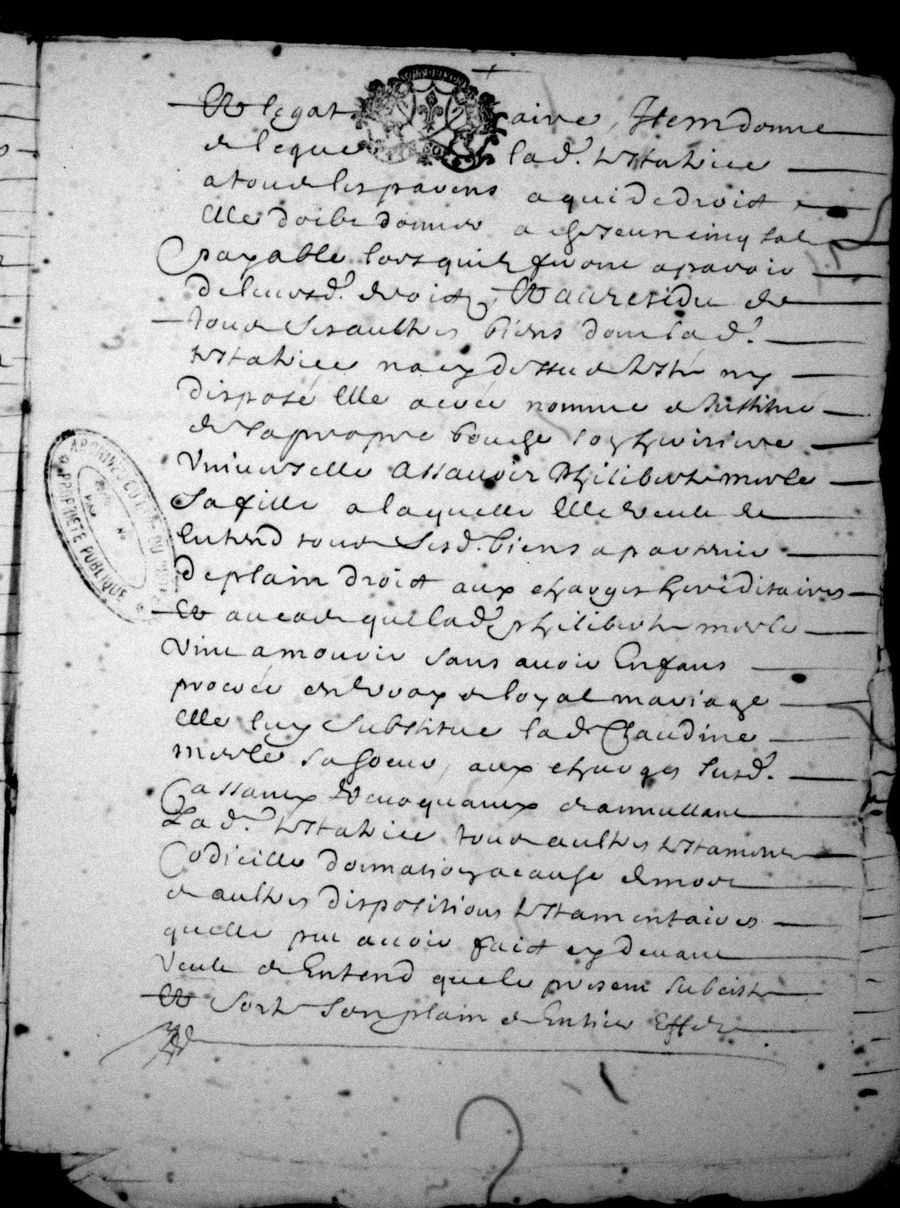 Et legat aire, Item donne
et legue lad. testatrice
a tous les parens a qui de droit
elle doibt donner a chescun cinq sols
payable lors quil feront aparoir
de leursd. droits, Et au residu de
tous ses aultres biens dont lad.
testatrice na cy dessus testé ny
disposé Elle a creé nommé et Institué
de sa propre bouche son heritiere
Universelle Assavoir Philiberte merle
Sa fille a laquelle Elle veult et
Entend tous Sesd. biens apartenir
de plain droit aux charges hereditaires
Et au cas que lad. philiberte merle
Vint a mourir sans avoir Enfans
procreé en vray et loyal mariage
elle luy substitue lad. Claudine
merle sa soeur, aux charges susd.
Cassant Revoquant et annullant
Lad. testatrice tous aultres testaments
Codicille donnation a cause de mort
et aultres dispositions testamentaires
quelle peut avoir fait cy devant
Veult et Entend que le present subciste
Et sorte Son plain et Entier Effect
ARCHIVES DU
PROPRIÉTÉ PUBLIQUE